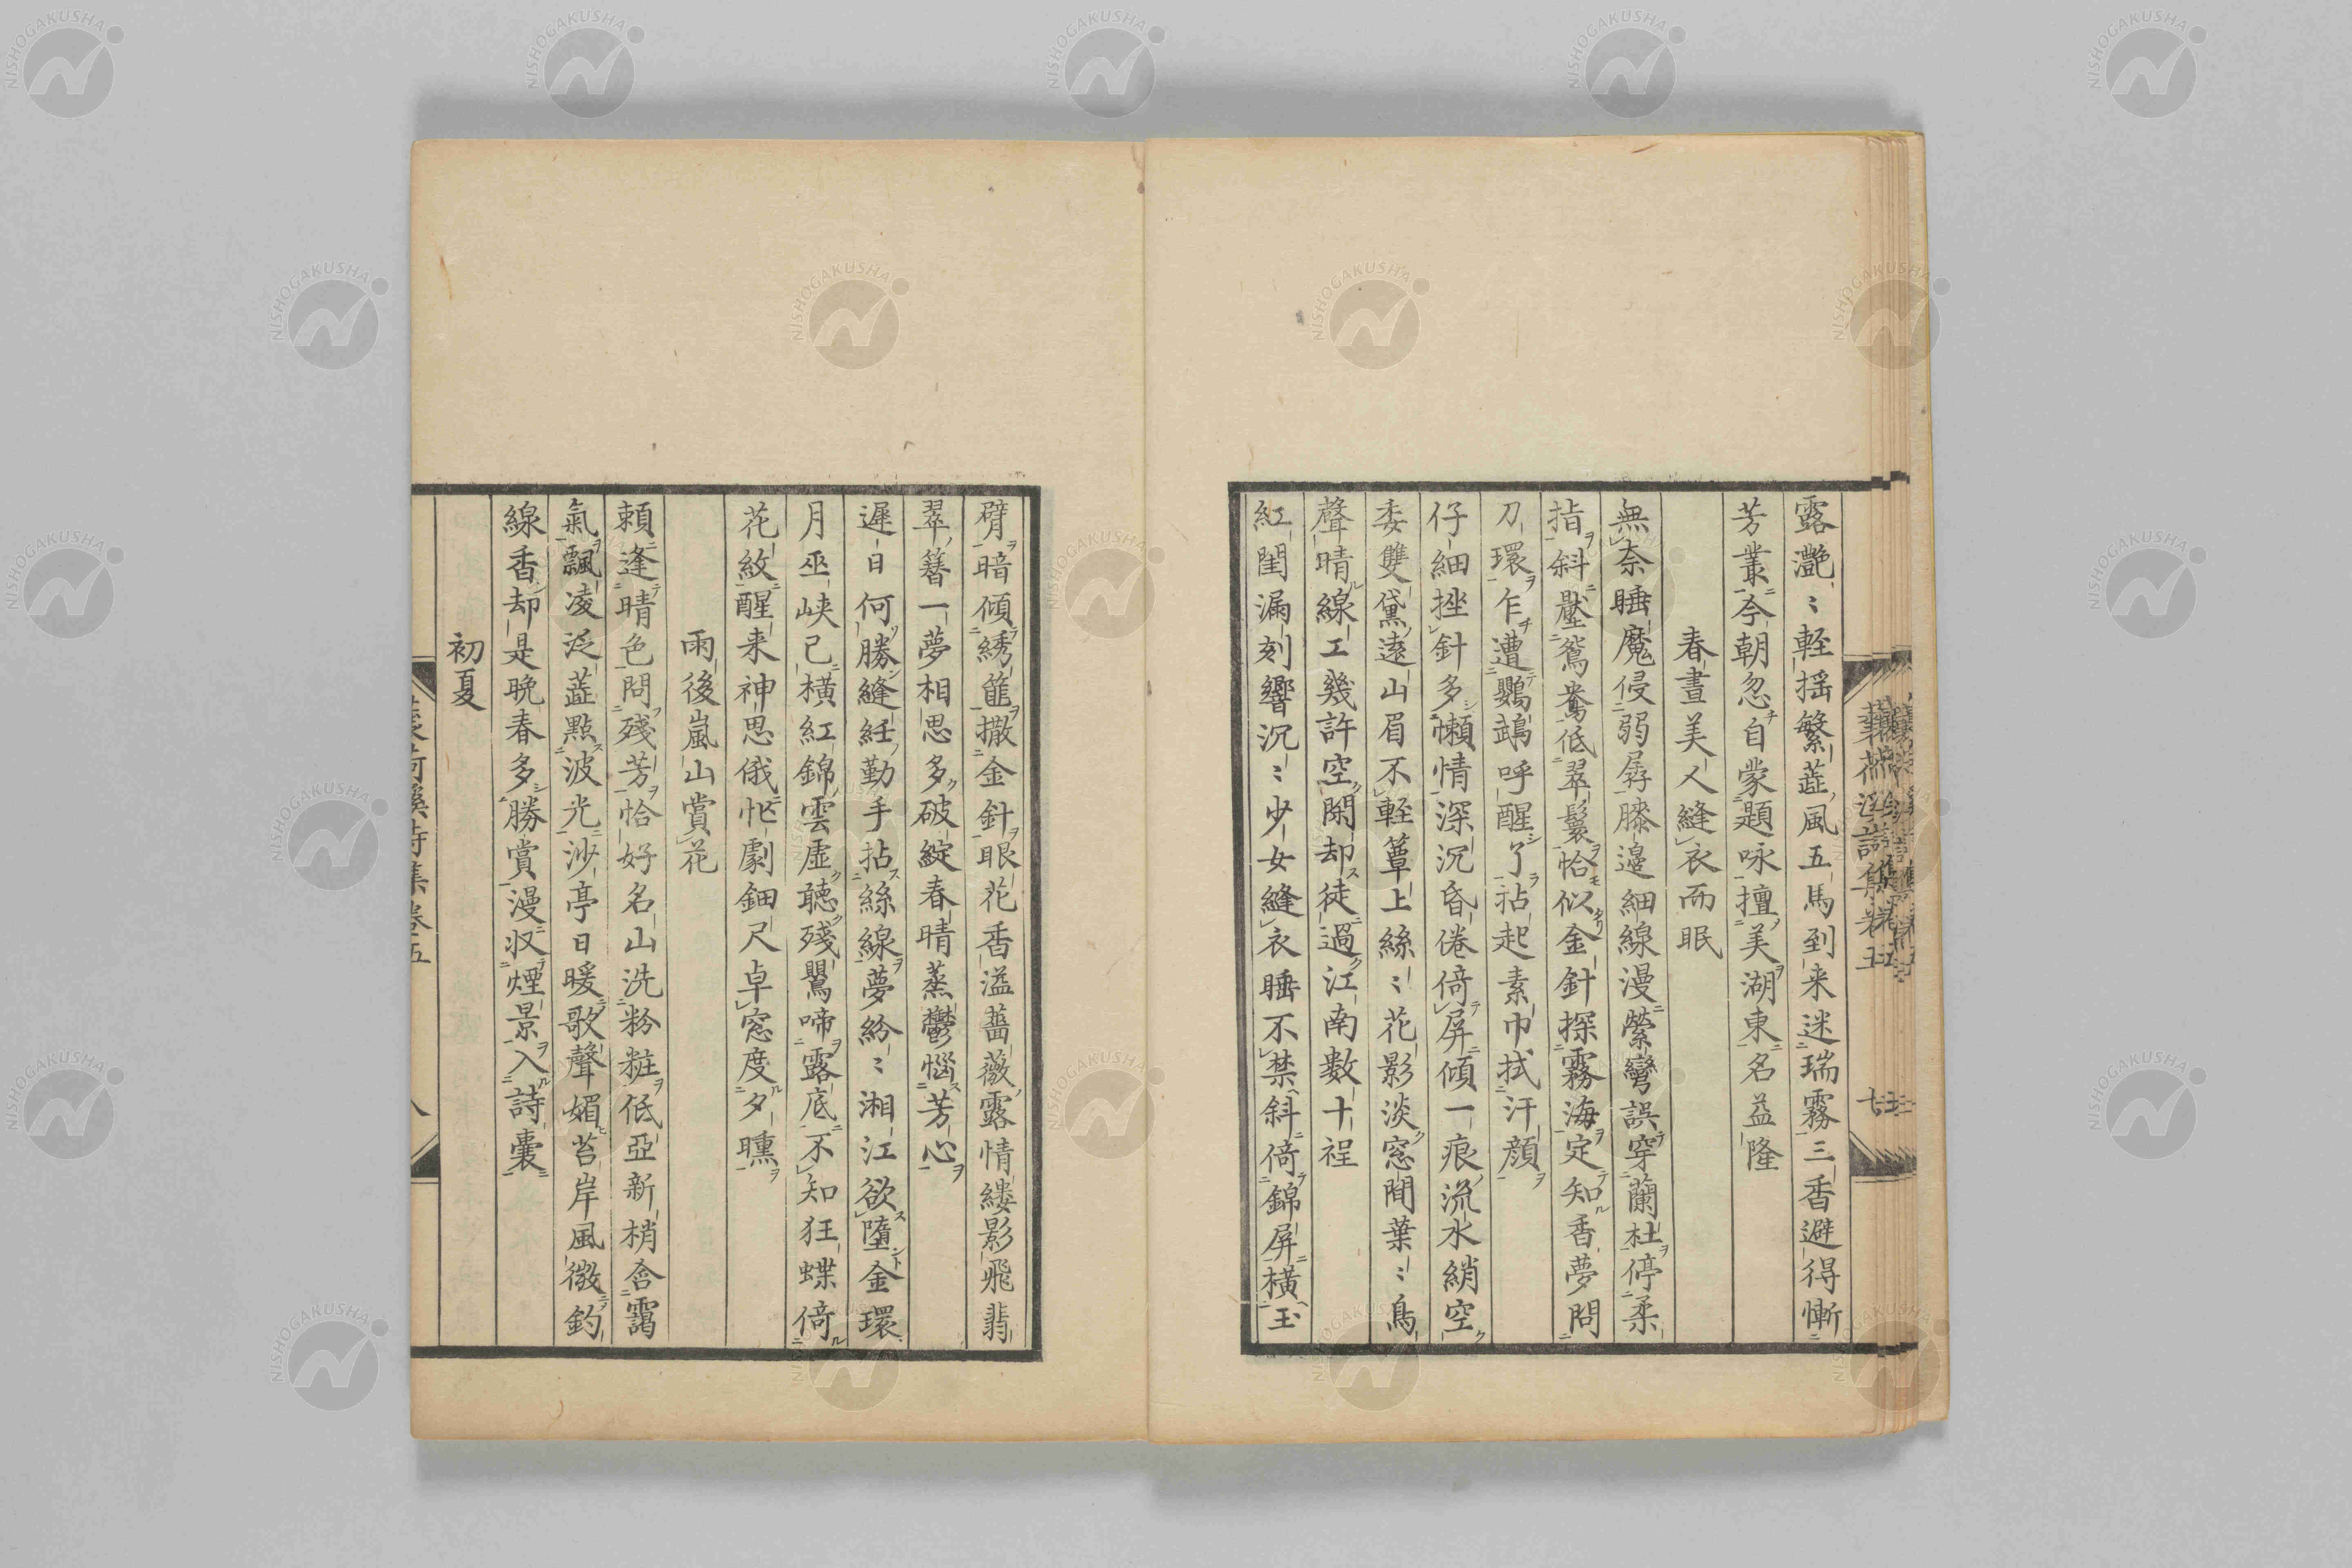 露灔〻軽揺繁蘂風五馬到来迷瑞霧三香避得慚
芳叢今朝忽自蒙題咏擅美湖東名益隆
春晝美人縫衣而眠
無奈睡魔侵弱孱膝邊細線漫縈彎誤穿蘭杜停柔
指斜壓鴛鴦低翠鬟恰似金針探霧海定知香夢問
刀環乍遭鸚鵡呼醒了拈起素巾拭汗顔
仔細挫針多懶情深沉昏倦倚屏傾一痕流水綃空
委雙黛遠山眉不軽簟上絲〻花影淡窓間葉〻鳥
聲晴線工幾許空閑却徒過江南數十程
紅閨漏刻響沉〻少女縫衣睡不禁斜倚錦屏橫玉
臂暗傾綉籠撒金針眼花香溢薔薇露情縷影飛翡
翠簪一夢相思多破綻春晴蒸鬱惱芳心
遲日何勝縫紝勤手拈絲線夢紛〻湘江欲墮金環
月巫峡已橫紅錦雲虛聽殘鸎啼露底不知狂蝶倚
花紋醒来神思俄忙劇鈿尺卓窓度夕曛
雨後嵐山賞花
頼逢晴色問殘芳恰好名山洗粉粧低亞新梢含靄
氣飄凌泛蘂點波光沙亭日暖歌聲媚苔岸風微釣
線香却是晩春多勝賞漫収煙景入詩囊
初夏